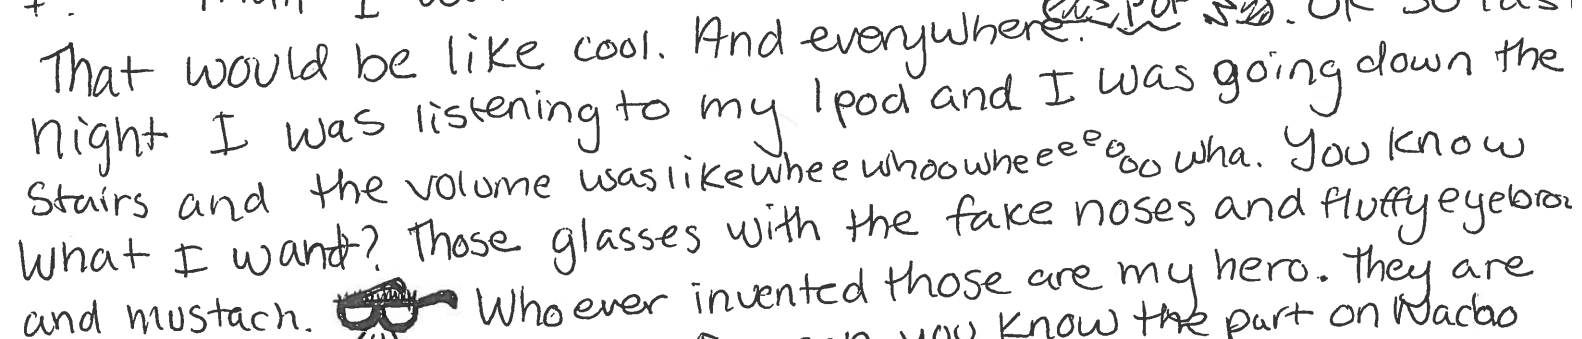 That would be like cool. And everywhere. OK so last
night I was listening to my Ipod and I was going down the
Stairs and the volume was like whee whoo wheeeeeoooo wha. You know
what I want? Those glasses with the fake noses and fluffy eyebrow
and mustach. Whoever invented those are my hero. They are
you know the part on Nacho